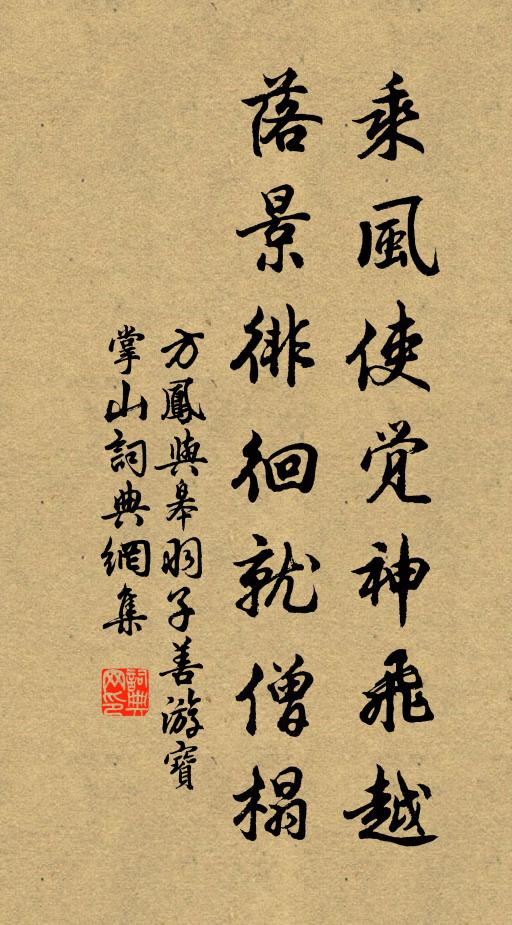 乘風使覺神飛越
落景徘徊就僧榻
方鳳與皋羽子善游寶
掌山詞典網集
詞典
网印